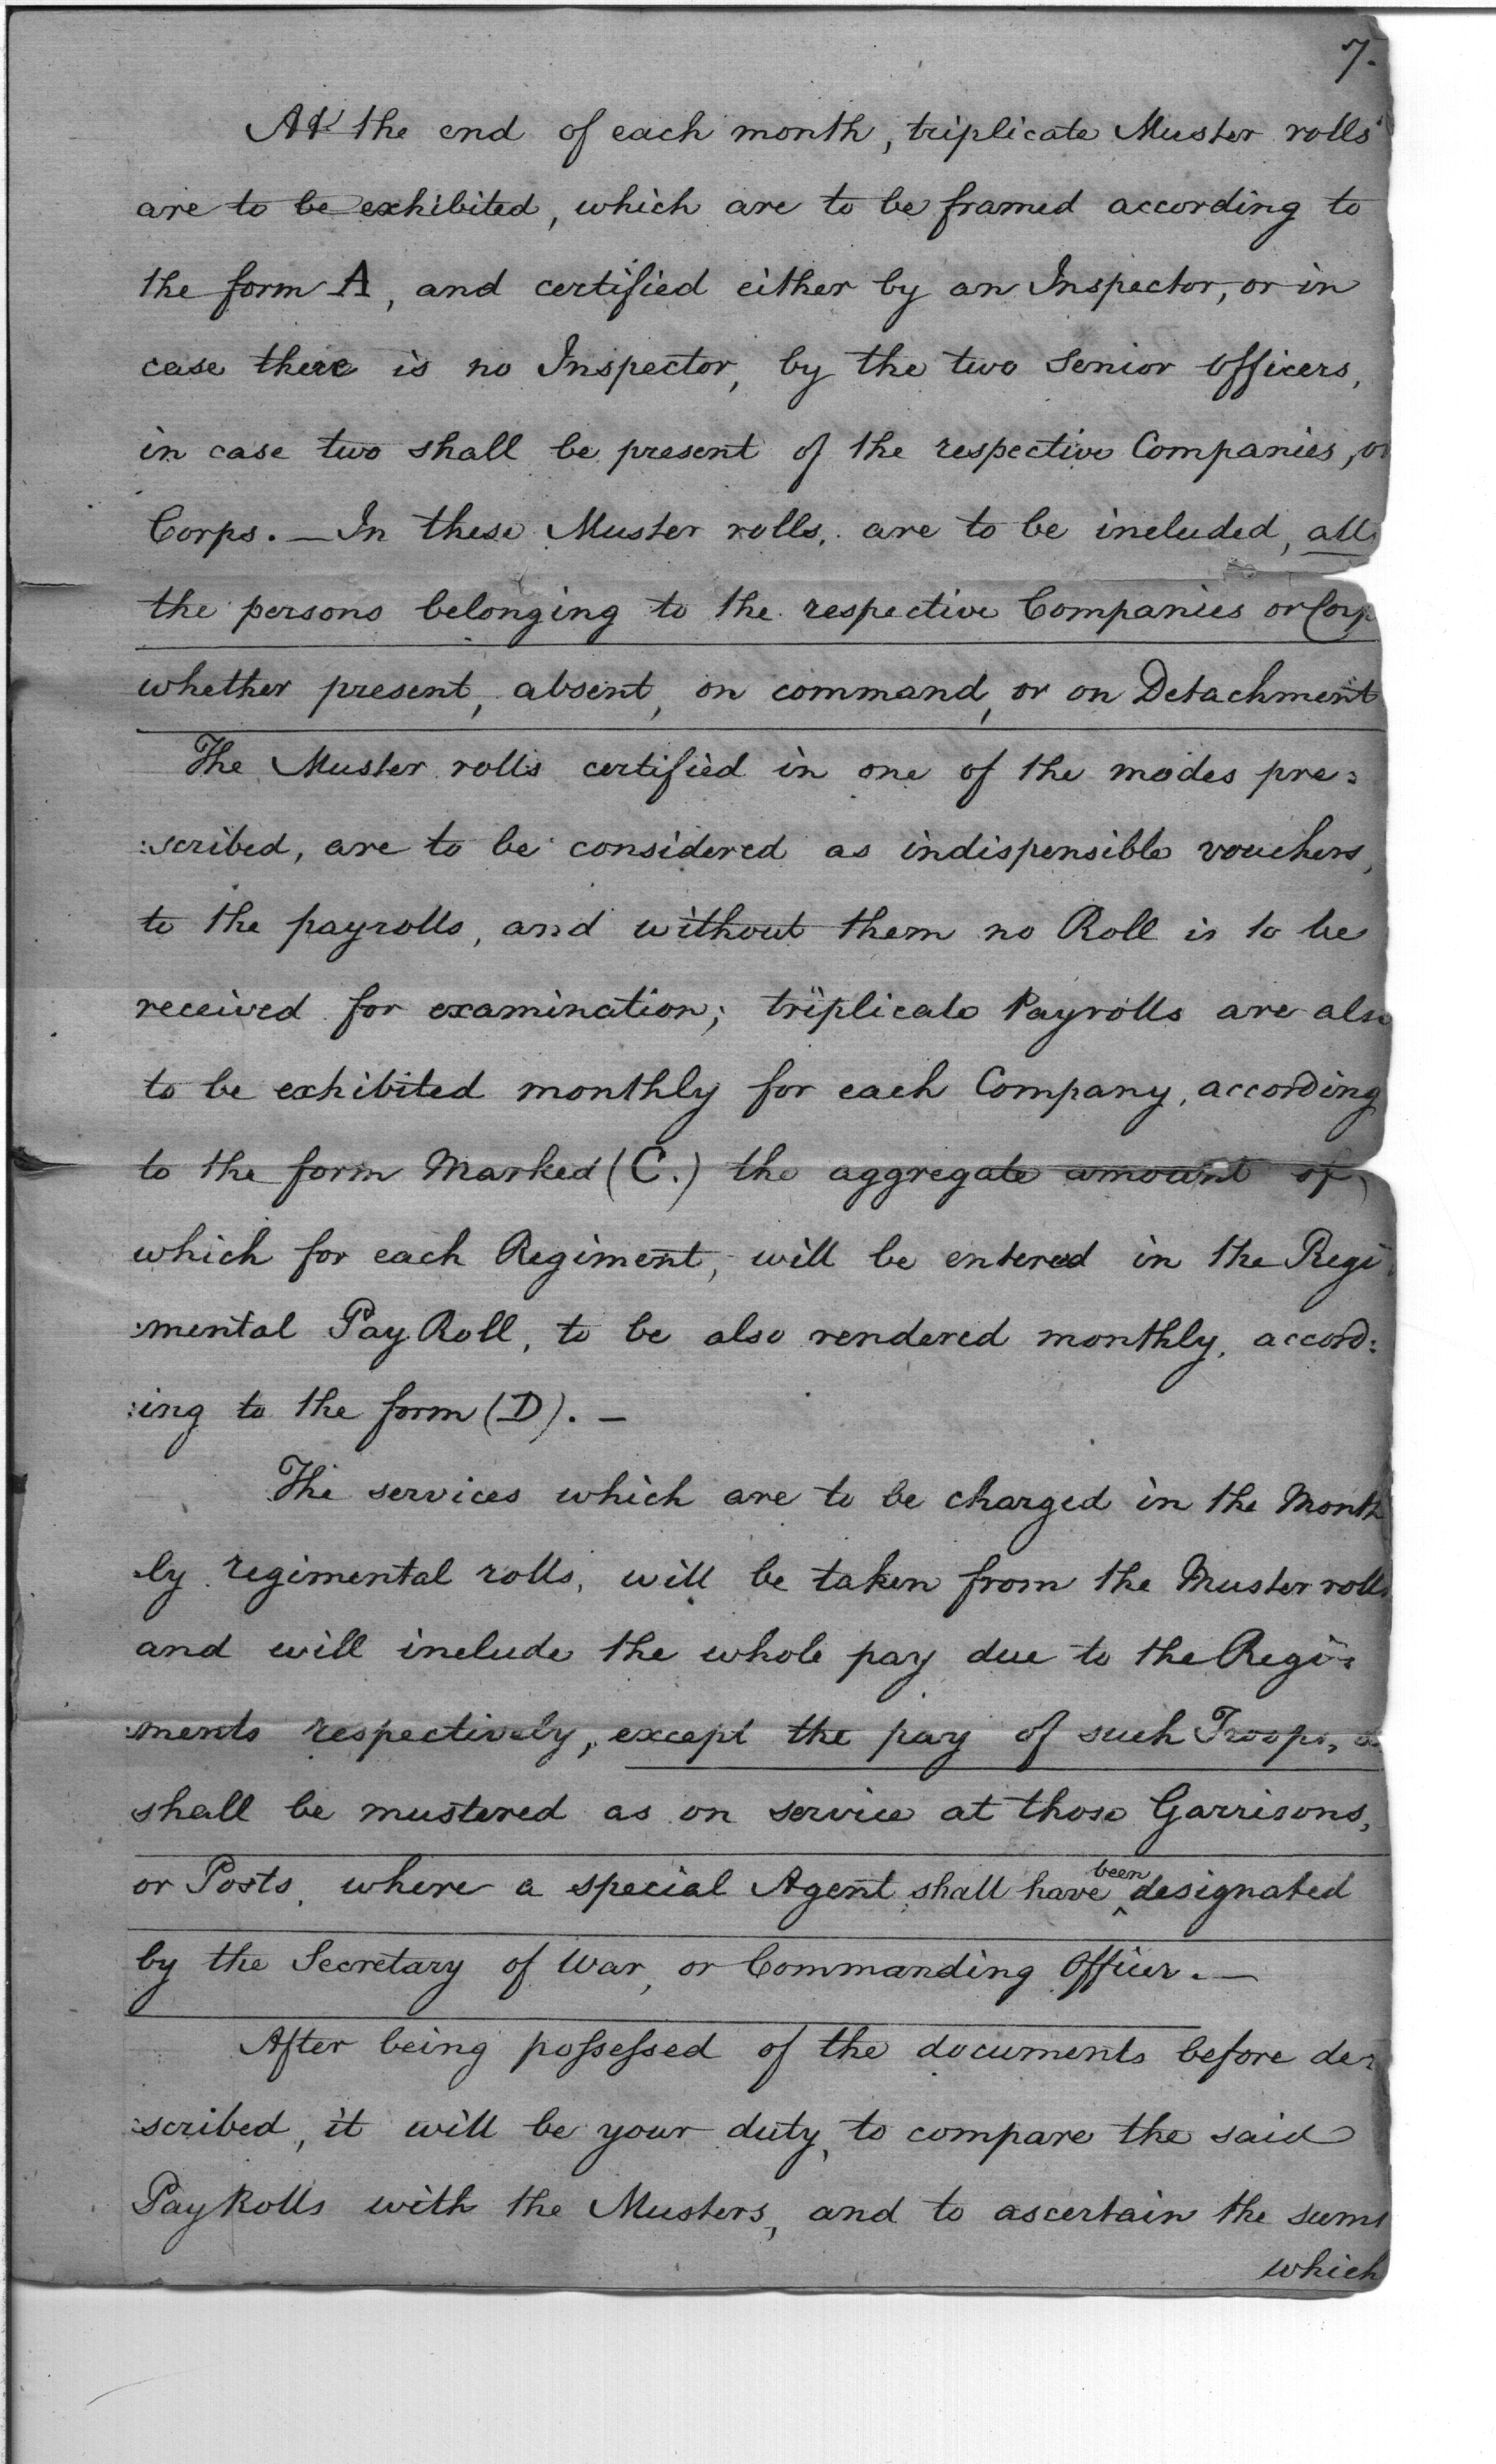 7.
At the end of each month, triplicate Muster rolls
are to be exhibited, which are to be framed according to
the form A, and certified either by an Inspector, or in
case there is no Inspector, by the two Senior Officers,
in case two shall be present of the respective Companies, or
Corps. — In these Muster rolls, are to be included, all
the persons belonging to the respective Companies or Corp
whether present, absent, on command, or on Detachment
The Muster rolls certified in one of the modes pre:
:scribed, are to be considered as indispensible vouchers,
to the payrolls, and without them no Roll is to be
received for examination; triplicate Payrolls are also
to be exhibited monthly for each Company, according
to the form Marked (C.) the aggregate amount of,
which for each Regiment, will be entered in the Regi
:mental Pay Roll, to be also rendered monthly, accord:
:ing to the form (D). —
The services which are to be charged in the Month
:ly regimental rolls, will be taken from the Muster rolls
and will include the whole pay due to the Regi:
:ments respectively, except the pay of such Troops, as
shall be mustered as on service at those Garrisons,
or Posts, where a special Agent shall have been designated
by the Secretary of War, or Commanding Officer. —
After being possessed of the documents before de:
:scribed, it will be your duty, to compare the said
PayRolls with the Musters, and to ascertain the sums
which